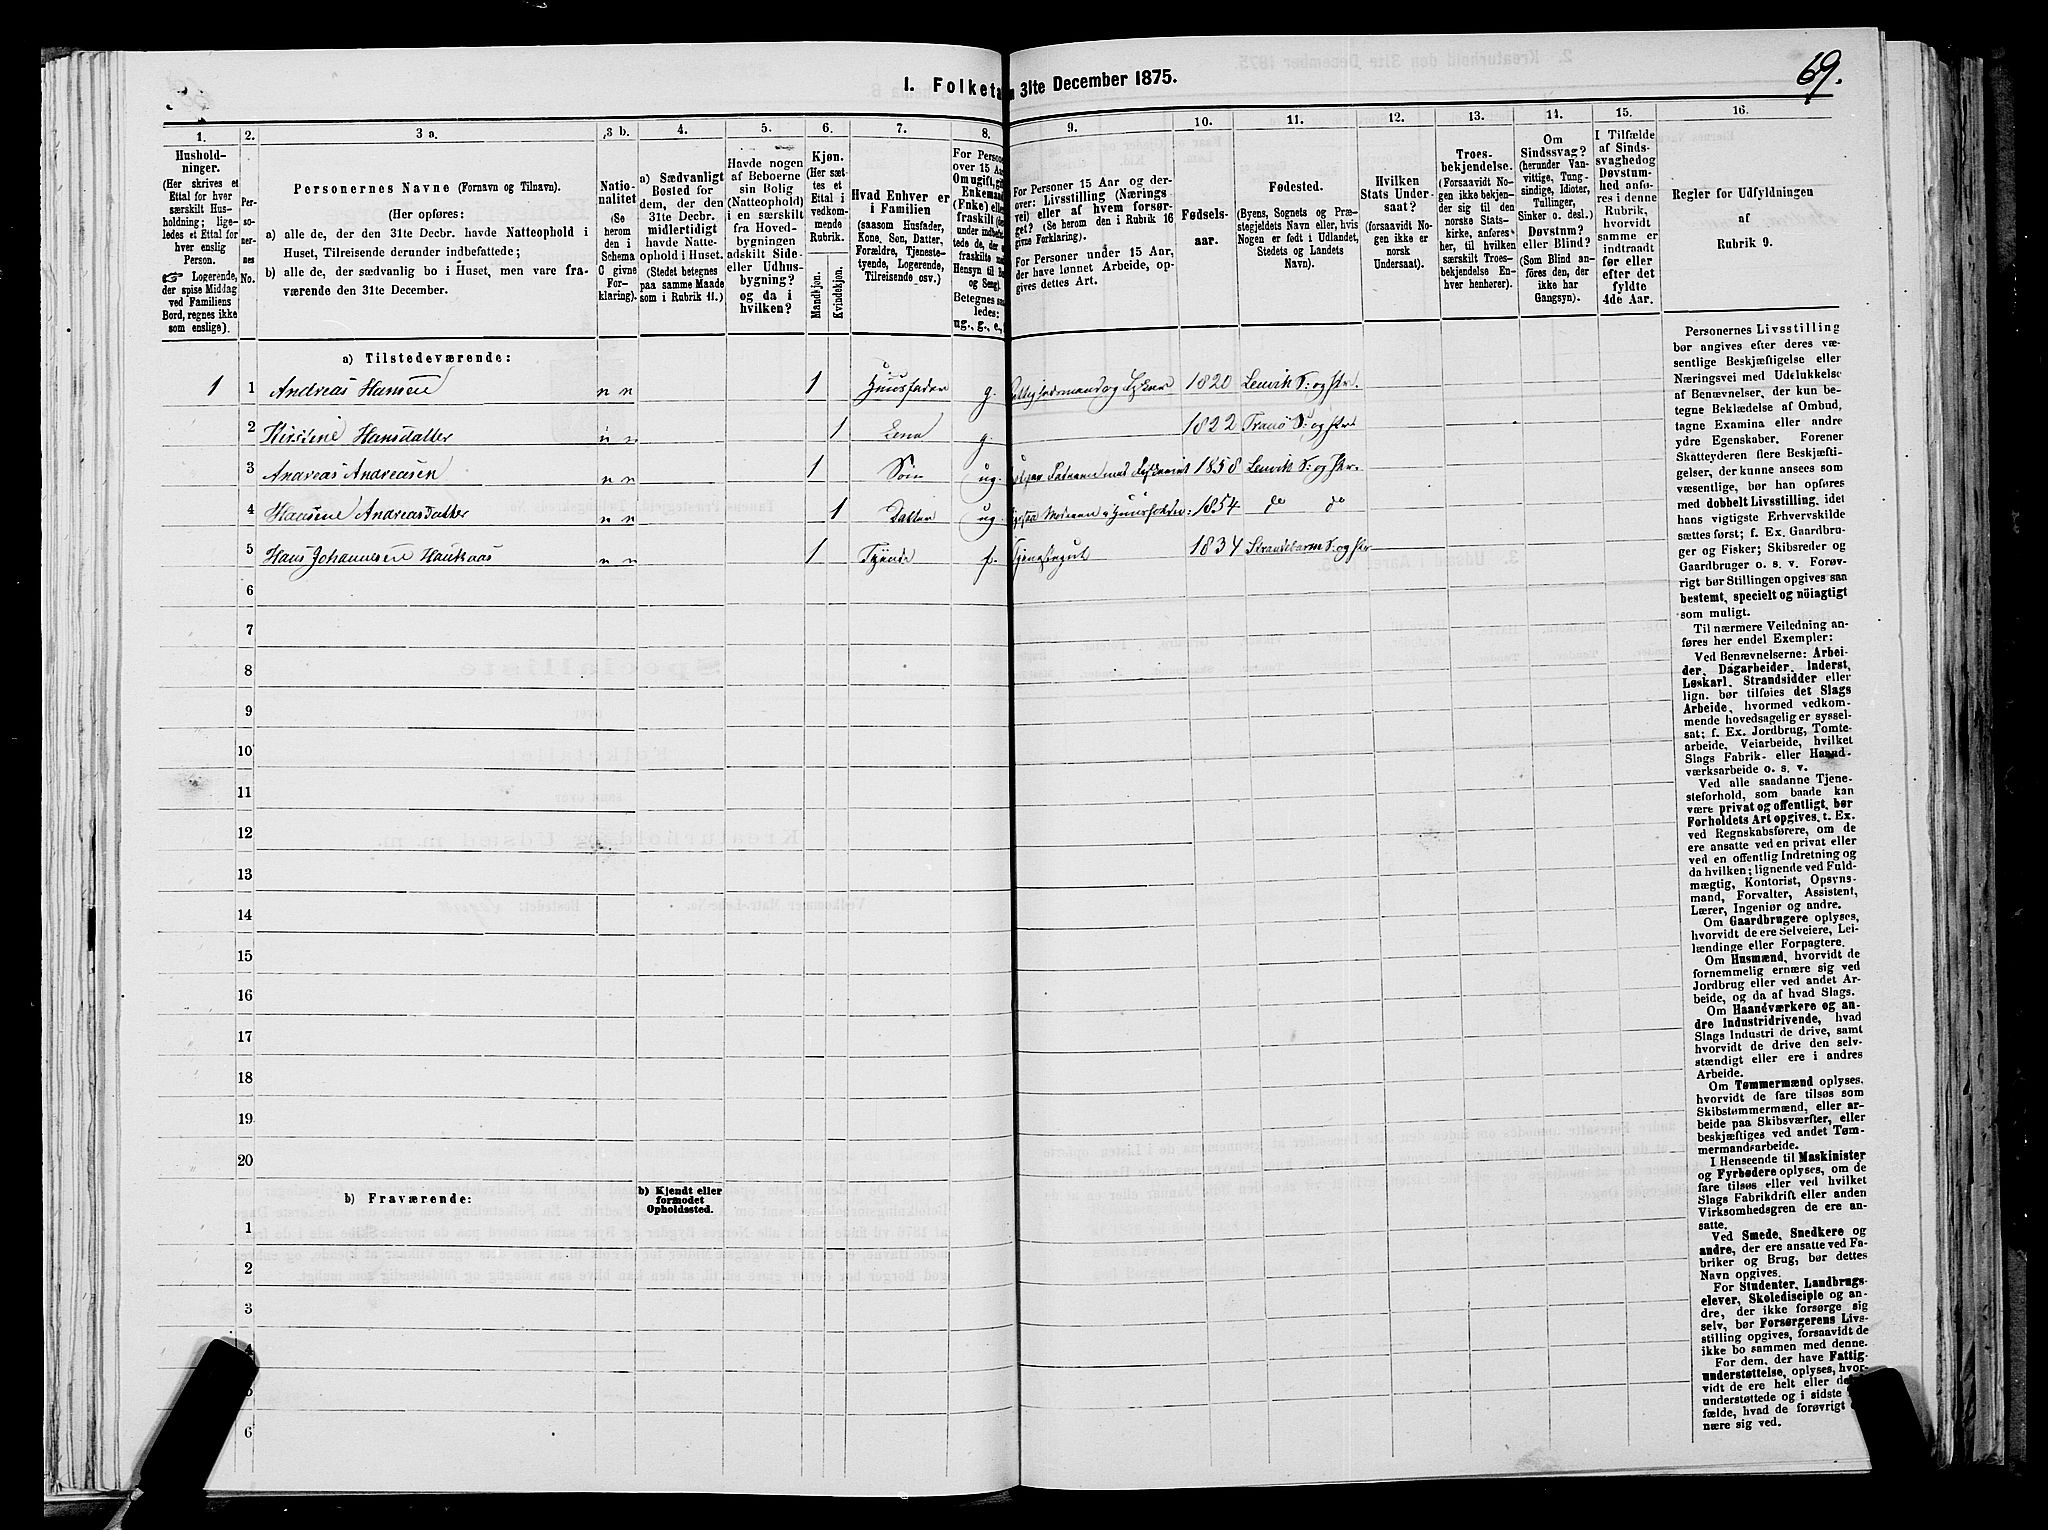 69.
I. Folketa n 31te December 1875.
1.
Hushold-
ninger.
(Her skrives et
Ettal for hver
særskilt Hus-
holdning; lige-
ledes et Ettal for
hver enslig
Person.
☞ Logerende,
der spise Middag
ved Familiens
Bord, regnes ikke
som enslige).
2.
Per-
so-
ner-
nes
No.
3 a.
Personernes Navne (Fornavn og Tilnavn).
(Her opføres:
a) alle de, der den 31te Decbr. havde Natteophold i
Huset, Tilreisende derunder indbefattede;
b) alle de, der sædvanlig bo i Huset, men vare fra-
værende den 31te December.
3 b.
Natio-
nalitet
(Se
herom
den i
Schema
C givne
For-
klaring).
4.
a) Sædvanligt
Bosted for
dem, der den
31te Decbr.
midlertidigt
havde Natte-
ophold i Huset.
(Stedet betegnes
paa samme Maade
som i Rubrik 11.)
5.
Havde nogen
af Beboerne
sin Bolig
(Natteophold)
i en særskilt
fra Hoved-
bygningen
adskilt Side-
eller Udhus-
bygning?
og da i
hvilken?
6.
Kjøn.
(Her sæt-
tes et
Ettal i
vedkom-
mende
Rubrik.
Mandkjøn.
Kvindekjøn.
7.
Hvad Enhver er
i Familien
(saasom Husfader,
Kone, Søn, Datter,
Forældre, Tjeneste-
tyende, Logerende,
Tilreisende osv.)
8.
For Persone
over 15 Aar
Om ugift, gif
Enkemand
(Fnke) elle
fraskilt (de
under indbefat-
tede de, der e
fraskilte med
Hensyn til Bo
og Seng).
Betegnes saa
ledes:
ug., g., e.,
9.
For Personer 15 Aar og der-
over: Livsstilling (Nærings
vei) eller af hvem forsør-
get? (Se herom den i Rubrik 16
givne Forklaring).
For Personer under 15 Aar,
der have lønnet Arbeide, op-
gives dettes Art.
10.
Fødsels-
aar.
11.
Fødested.
(Byens, Sognets og Præ-
stegjeldets Navn eller, hvis
Nogen er født i Udlandet,
Stedets og Landets
Navn).
12.
Hvilken
Stats Under-
saat?
(forsaavidt No-
gen ikke er
norsk
Undersaat).
13.
Troes-
bekjendelse.
(Forsaavidt No-
gen ikke bekjen-
der sig til den
norske Stats-
kirke, anføres
her, til hvilken
særskilt Troes-
bekjendelse En-
hver henhører).
14.
Om
Sindssvag?
(herunder Van-
vittige, Tung-
sindige, Idioter,
Tullinger,
Sinker o. desl.)
Døvstum?
eller Blind?
(Som Blind an-
føres den, der
ikke har
Gangsyn).
15.
I Tilfælde
af Sinds-
svaghed og
Døvstum-
hed anfø-
res i denne
Rubrik,
hvorvidt
samme er
indtraadt
før eller
efter det
fyldte
4de Aar.
16.
Regler for Udfyldningen
af
Rubrik 9.
a) Tilstedeværende:
1 1 Andreas Hansen n n 1 Huusfader g. 1820 Lenvik S: og Pr.
2 Kirstine Hansdatter n n 1 g. 1822 Tranø S: og Pr
3 Andreas Andreasen n n 1 Søn ug. 1858 Lenvik S: og Pr.
4 Hansine Andreasdatter n n 1 Datter ug. 1854 do do
5 Hans Johannesen Hauknæs n n 1 Tyende Tjenestegut 1834 Strandebarm S: og Pr
6
7
8
9
10
11
12
13
14
15
16
17
18
19
20
b) Fraværende:
b) Kjendt eller
formodet
Opholdssted.
1
2
3
4
6
Personernes Livsstilling
bør angives efter deres væ-
sentlige Beskjæftigelse eller
Næringsvei med Udelukkelse
af Benævnelser, der kun be-
tegne Beklædelse af Ombud,
tagne Examina eller andre
ydre Egenskaber. Forener
Skatteyderen flere Beskjæfti-
gelser, der kunne ansees som
væsentlige, bør han opføres
med dobbelt Livsstilling, idet
hans vigtigste Erhvervskilde
sættes først; f. Ex. Gaardbru-
ger og Fisker; Skibsreder og
Gaardbruger o. s. v. Forøv-
rigt bør Stillingen opgives saa
bestemt, specielt og nöiagtigt
som muligt.
Til nærmere Veiledning an-
føres her endel Exempler:
Ved Benævnelserne: Arbei-
der, Dagarbeider, Inderst,
Løskarl, Strandsidder eller
lign. bør tilføies det Slags
Arbeide, hvormed vedkom-
mende hovedsagelig er syssel-
sat; f. Ex. Jordbrug, Tomte-
arbeide, Veiarbeide, hvilket
Slags Fabrik- eller Haand-
værksarbeide o. s. v.
Ved alle saadanne Tjene-
steforhold, som baade kan
være privat og offentligt, bør
Forholdets Art opgives, t. Ex.
ved Regnskabsførere, om de
ere ansatte ved en privat eller
ved en offentlig Indretning og
da hvilken; lignende ved Fuld-
mægtig, Kontorist, Opsyns-
mand, Forvalter, Assistent,
Lærer, Ingeniør og andre.
Om Gaardbrugere oplyses,
hvorvidt de ere Selveiere, Lei-
lændinge eller Forpagtere.
Om Husmænd, hvorvidt de
fornemmelig ernære sig ved
Jordbrug eller ved andet Ar-
beide, og da af hvad Slags.
Om Haandværkere og an-
dre Industridrivende, hvad
Slags Industri de drive, samt
hvorvidt de drive den selv-
stændigt eller ere i andres
Arbeide.
Om Tømmermænd oplyses,
hvorvidt de fare tilsøs som
Skibstømmermænd, eller ar-
beide paa Skibsværfter, eller
beskjæftiges ved andet Tøm-
mermandsarbeide.
I Henseende til Maskinister
og Fyrbødere oplyses, om de
fare tilsøs eller ved hvilket
Slags Fabrikdrift eller anden
Virksomhedsgren de ere an-
satte.
Ved Smede, Snedkere og
andre, der ere ansatte ved Fa-
briker og Brug, bør dettes
Navn opgives.
For Studenter, Landbrugs-
elever, Skoledisciple og an-
dre, der ikke forsørge sig
selv, bør Forsørgerens Livs-
stilling opgives, forsaavidt de
ikke bo sammen med denne.
For dem, der have Fattig-
understøttelse, oplyses, hvor-
vidt de ere helt eller de
understøttede og i sidste
fælde, hvad de forøvrigt
nære sig ved.